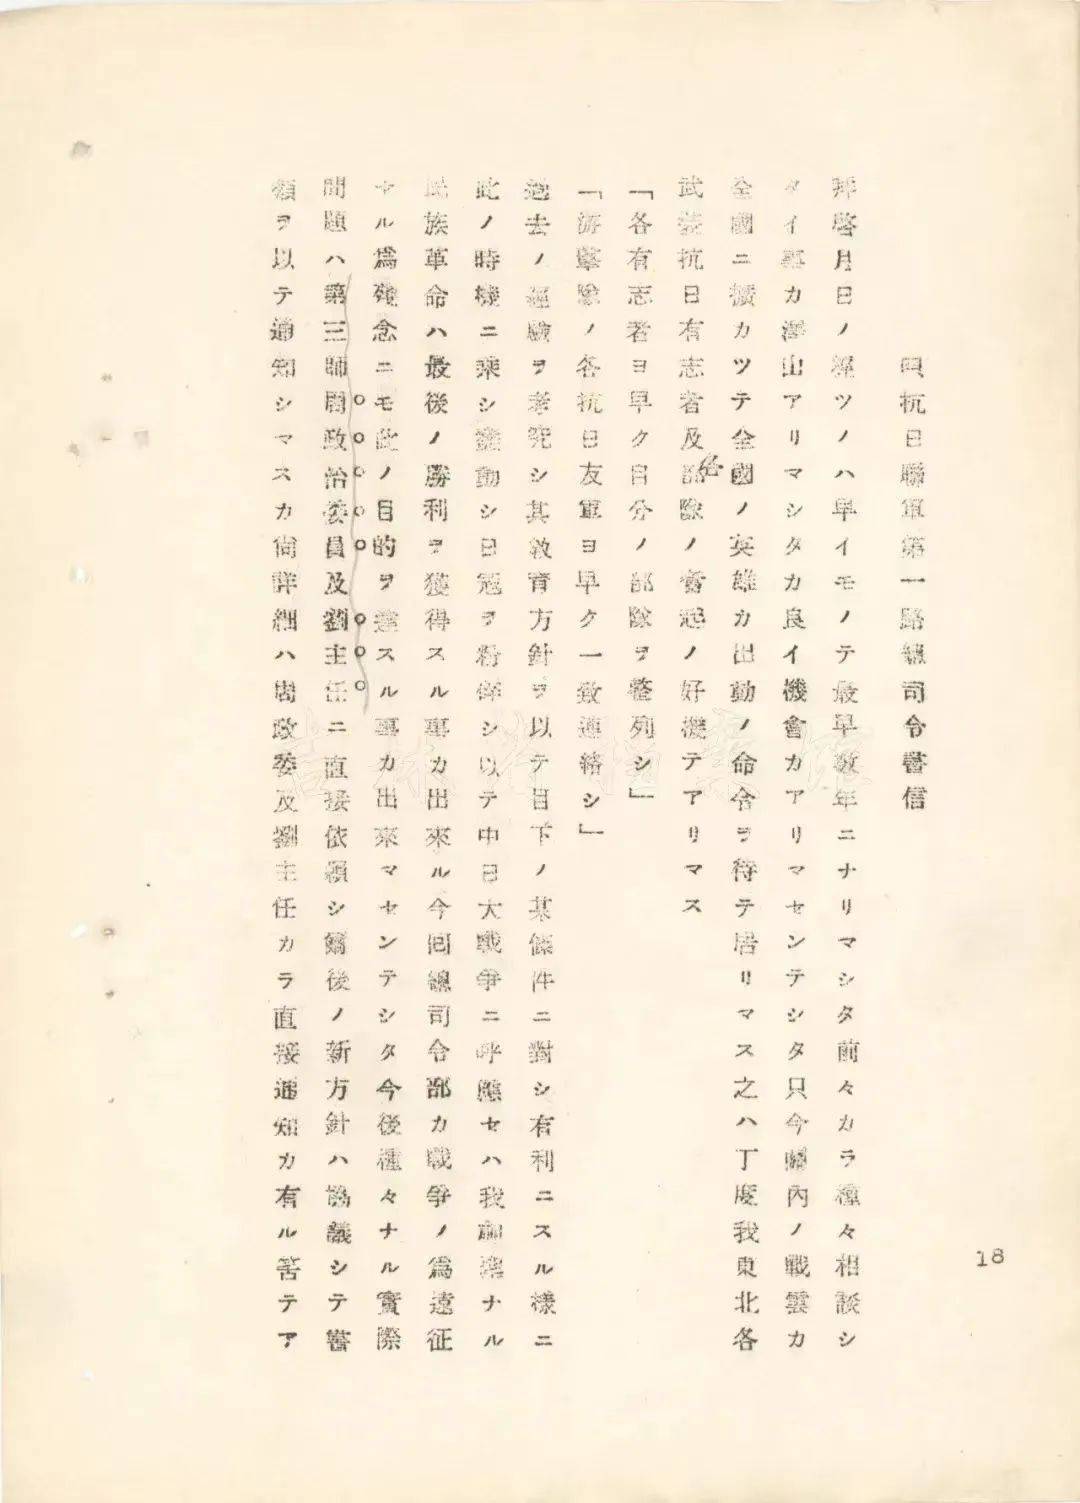 抗日聯軍第一路總司令書信
拜啓月日ノ經ツノハ早イモノテ最早數年ニナリマシタ前々カラ種々相談シ
タイ事カ澤山アリマシタカ良イ機會カアリマセンテシタ只今關內ノ戰雲カ
全國ニ擴カツテ全國ノ英雄カ出動ノ命令ヲ待テ居リマス之ハ丁度我東北各
武裝抗日有志者及各部隊ノ奮起ノ好機テアリマス
「各有志者ヨ早ク自分ノ部隊ヲ整列シ」
「游擊隊ノ各抗日友軍ヨ早ク一致連絡シ」
過去ノ經驗ヲ考究シ其教育方針ヲ以テ目下ノ某條件ニ對シ有利ニスル樣ニ
此ノ時機ニ乘シ動シ日冠ヲ粉碎シ以テ中日大戰爭ニ呼應セハ我ナル
民族革命ハ最後ノ勝利ヲ獲得スル事カ出來ル今囘總司令部カ戰爭ノ爲遠征
セル爲殘念ニモ此ノ目的ヲ達スル事カ出來マセンテシタ今後種々ナル實際
問題ハ第三師周政治委員及劉主任ニ直接依賴シ爾後ノ新方針ハ協議シテ書
類ヲ以テ通知シマスカ尙詳細ハ周政委及劉主任カラ直接通知カ有ル筈テア
18
吉林省檔案館